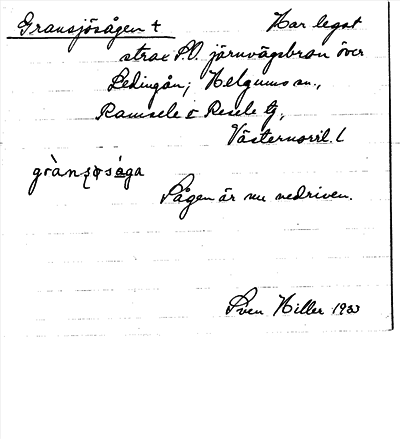 Gransjösågen †
Har legat
strax S.O. järnvägsbron över
Ledingån; Helgums sn.,
Ramsele o Resele tg,
Västernorrl. l
gràn sågа
Sågen är nu nedriven.
Sven Hiller 1933